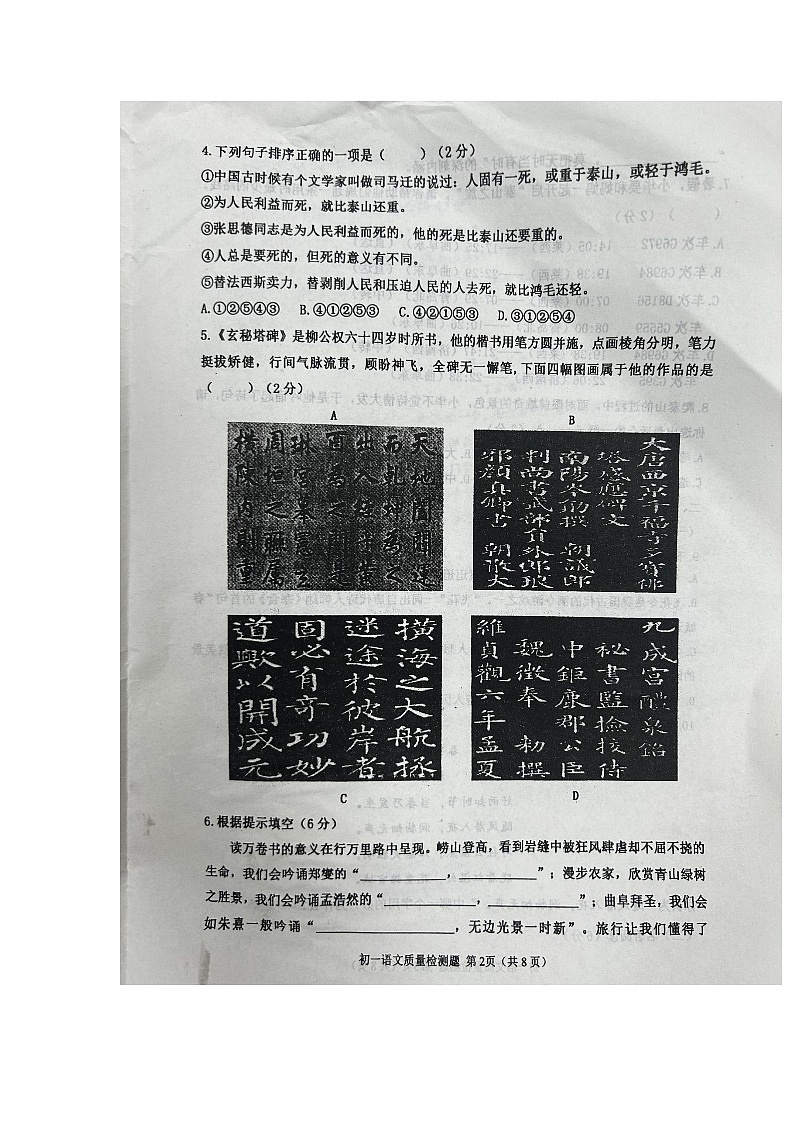 4.下列句子排序正确的一项是（　　）（2分）
①中国古时候有个文学家叫做司马迁的说过：人固有一死，或重于泰山，或轻于鸿毛。
②为人民利益而死，就比泰山还重。
③张思德同志是为人民利益而死的，他的死是比泰山还要重的。
④人总是要死的，但死的意义有不同。
⑤替法西斯卖力，替剥削人民和压迫人民的人去死，就比鸿毛还轻。
A.①②⑤④③　B.④①②⑤③　C.④②①⑤③　D.③①②⑤④
5.《玄秘塔碑》是柳公权六十四岁时所书，他的楷书用笔方圆并施，点画棱角分明，笔力
挺拔矫健，行间气脉流贯，顾盼神飞，全碑无一懈笔,下面四幅图画属于他的作品的是
（　　）（2分）
A
B
大唐西京千福寺多宝佛
塔感应碑文
南阳岑勋撰　朝议郎
判尚书武部员外郎琅
邪颜真卿书　朝散大
横海之大航拯
迷途於彼岸者
固必有奇功妙
道欤以开成元
九成宫醴泉铭
秘书监检校侍
中钜鹿郡公臣
魏徵奉　敕撰
维贞观六年孟夏
C
D
6.根据提示填空（6分）
读万卷书的意义在行万里路中呈现。崂山登高，看到岩缝中被狂风肆虐却不屈不挠的
生命，我们会吟诵郑燮的“____________，____________”；漫步农家，欣赏青山绿树
之胜景，我们会吟诵孟浩然的“____________，____________”；曲阜拜圣，我们会
如朱熹一般吟诵“__________________，无边光景一时新”。旅行让我们懂得了
初一语文质量检测题 第2页（共8页）